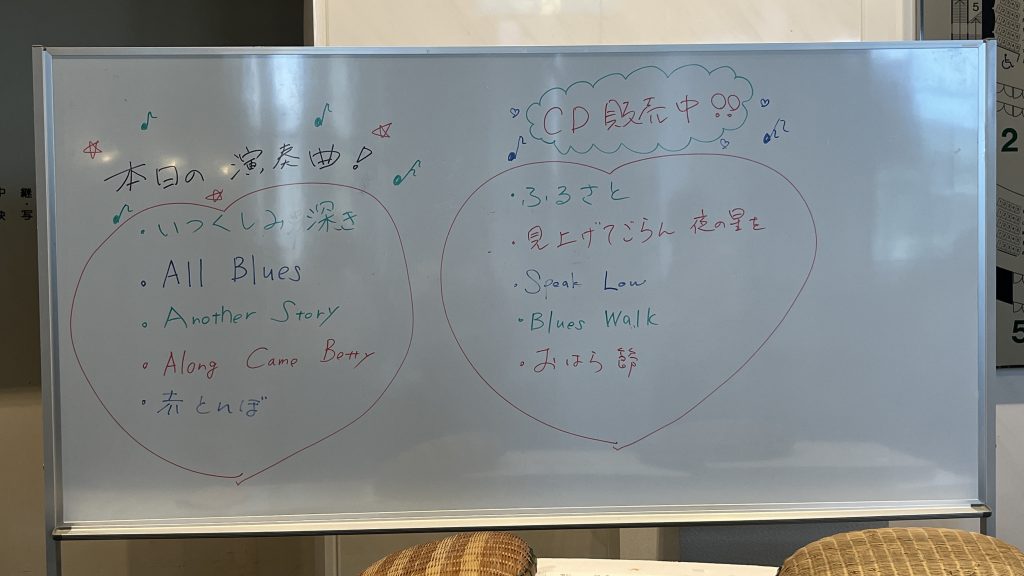 本日の演奏曲!
・いつくしみ深き
・All Blues
・Another Story
・Along Came Betty
・赤とんぼ
CD販売中!!
・ふるさと
・見上げてごらん 夜の星を
・Speak Low
・Blues Walk
・おはら節
2
5
5